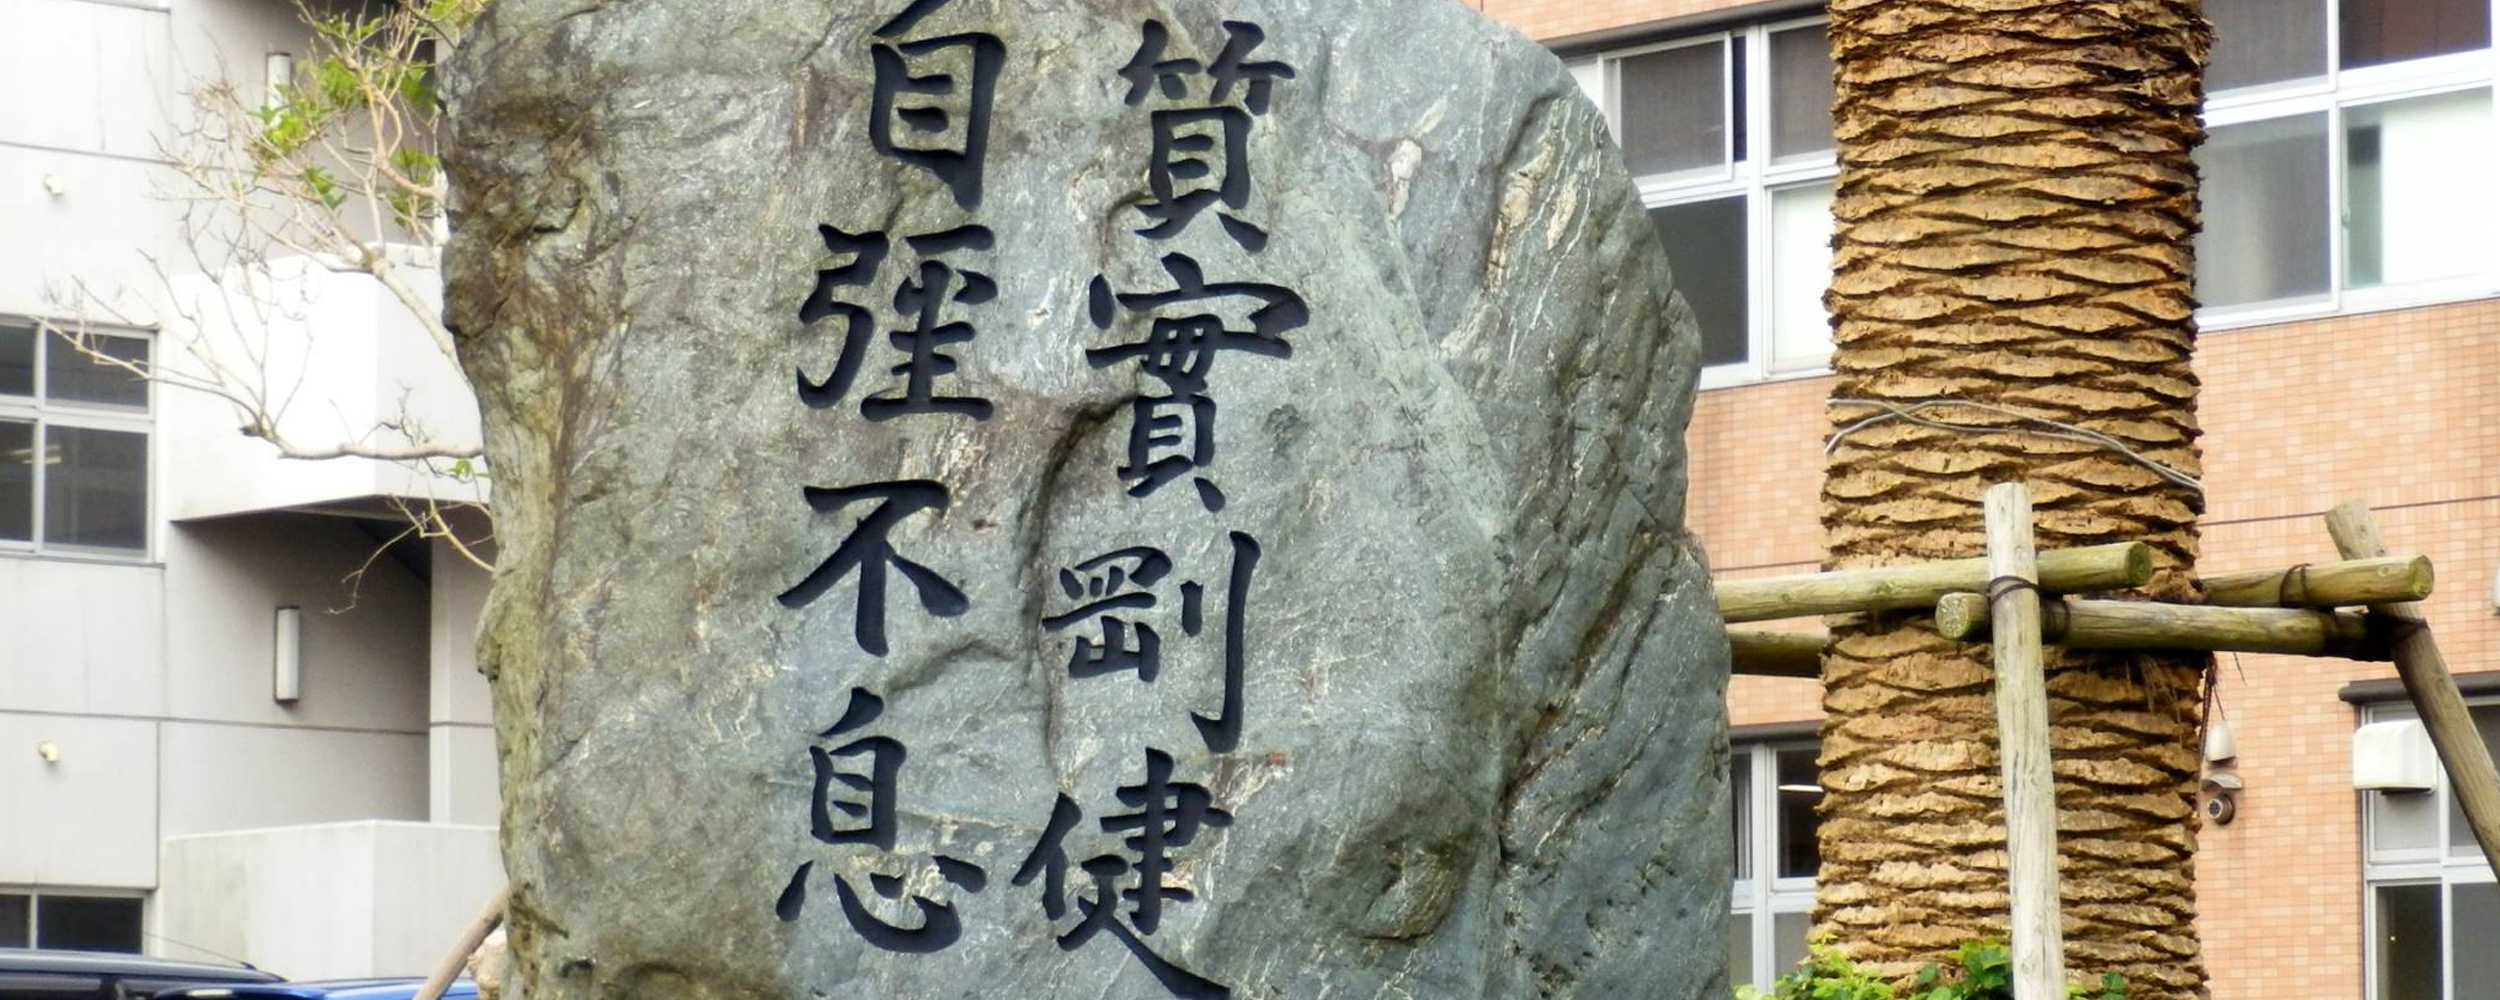 質實剛健
自彊不息